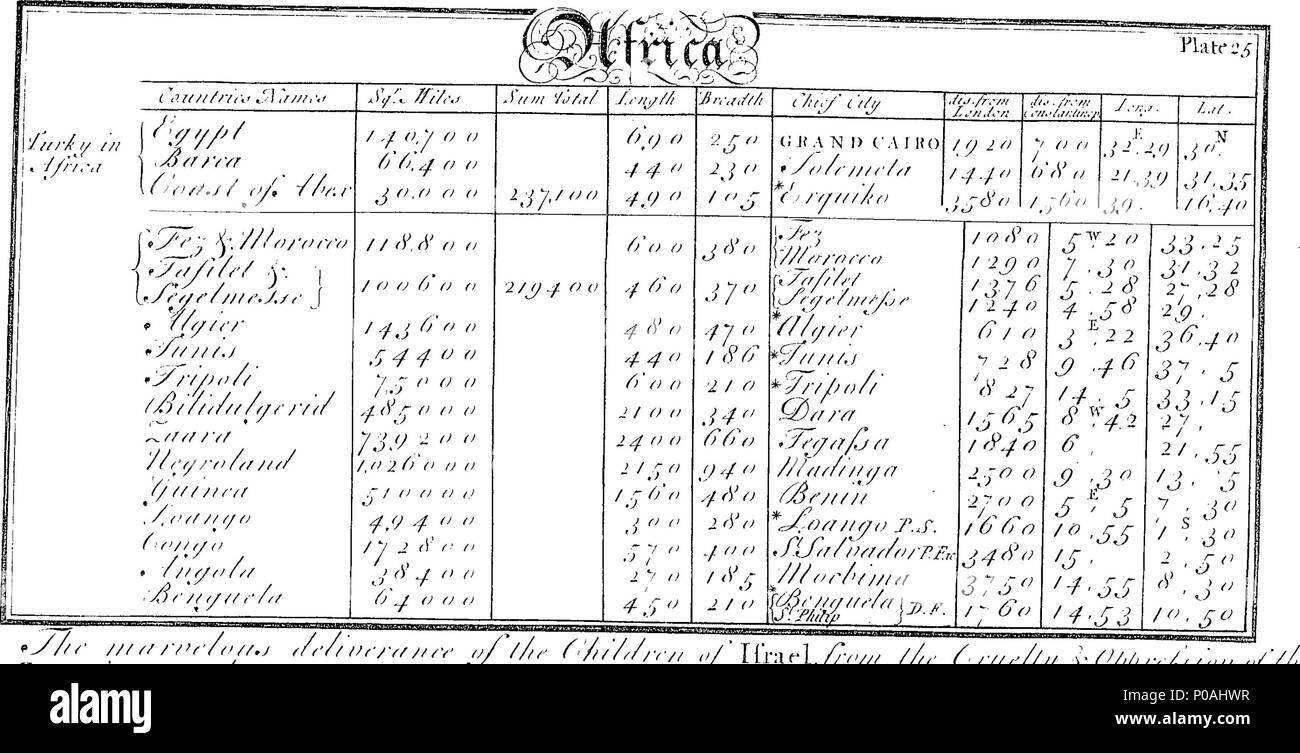 Africa
Plate 25
Countries Names Sqr. Miles Sum Total Length Breadth Chief City dis. from London dis. from Constantinop Long. Lat.
Turky in Africa
Egypt 140,700 690 250 GRAND CAIRO 1920 700 32.29 E 30. N
Barca 66,400 440 230 Tolemeta 1440 680 21.39 31.35
Coast of Abex 30,000 237,100 490 105 *Erquiko 3580 1560 39. 16.40
Fez & Morocco 118,800 600 380 Fez 1080 5 W.20 33.25
Morocco 1290 7.30 31.32
Tafilet & Segelmesse 100600 219400 460 370 Tafilet 1376 5.28 27.28
Segelmesse 1240 4.58 29.
Algier 143600 480 470 *Algier 610 3 E.22 36.40
Tunis 54400 440 186 *Tunis 728 9.46 37.5
Tripoli 75000 600 210 *Tripoli 827 14.5 33.15
Bilidulgerid 485000 2100 340 Dara 1565 8 W.42 27.
Zaara 739200 2400 660 Tegassa 1840 6. 21.55
Negroland 1026000 2150 940 Madinga 2500 9.30 13.5
Guinea 510000 1560 480 Benin 2700 5 E.5 7.30
Loango 49400 300 280 *Loango P.S. 1660 10.55 1 S.30
Congo 172800 570 400 St Salvador P.Ex 3480 15. 2.50
Angola 38400 270 185 Mochima 3750 14.55 8.30
Benguela 64000 450 210 *Benguela St. Philip D.F. 1760 14.53 10.50
The marvelous deliverance of the Children of Israel from the Cruelty & Oppression of th
alamy
Image ID: P0AHWR
www.alamy.com